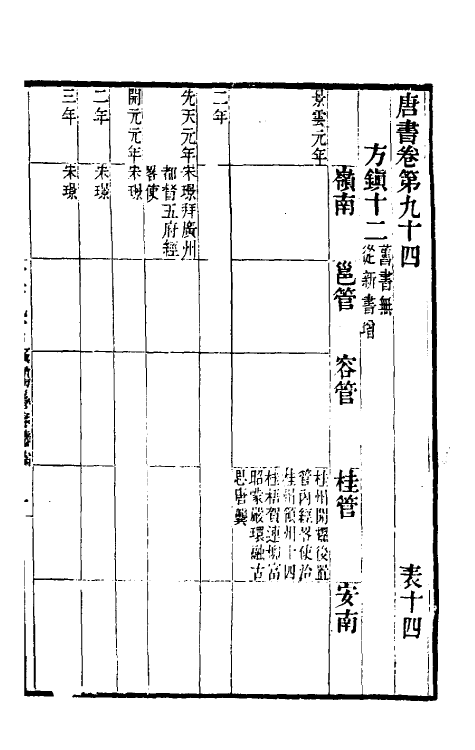 唐書卷第九十四
表十四
方鎮十二
舊書無
從新書增
嶺南
邕管
容管
桂管
安南
景雲元年
桂州開耀後置
管內經畧使治
桂州領州十四
桂梧賀連柳富
昭蒙嚴環融古
思唐龔
二年
先天元年
宋璟拜廣州
都督五府經
畧使
開元元年
宋璟
二年
宋璟
三年
宋璟